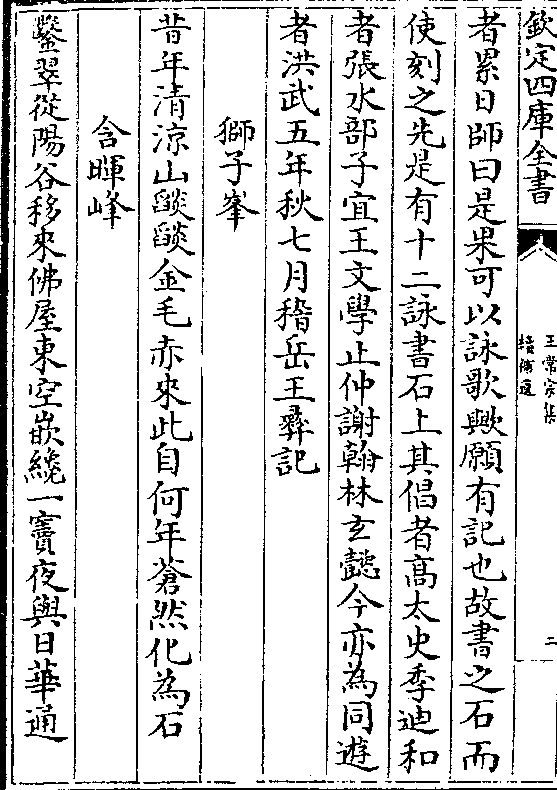 欽定四庫全書
王常宗集
補遺
二
者累日師曰是果可以詠歌歟願有記也故書之石而
使刻之先是有十二詠書石上其倡者髙太史季迪和
者張水部子宜王文學止仲謝翰林玄懿今亦為同遊
者洪武五年秋七月稽岳王彞記
獅子峯
昔年清涼山䑙䑙金毛赤來此自何年蒼然化為石
含暉峰
鑿翠從陽谷移來佛屋東空嵌繞一竇夜與日華通